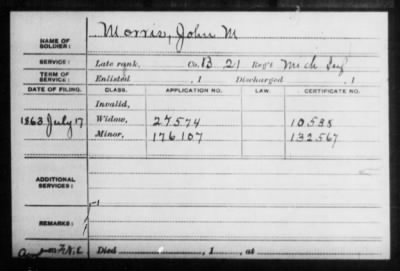 NAME OF SOLDIER: Morris, John M
SERVICE: Late rank, Co. B 21 Reg't Mich Inf
TERM OF SERVICE: Enlisted , 1 Discharged , 1
DATE OF FILING. CLASS. APPLICATION NO. LAW. CERTIFICATE NO.
Invalid,
1863 July 17 Widow, 27574 10588
Minor, 176107 132567
ADDITIONAL SERVICES:
REMARKS:
Died , 1 , at